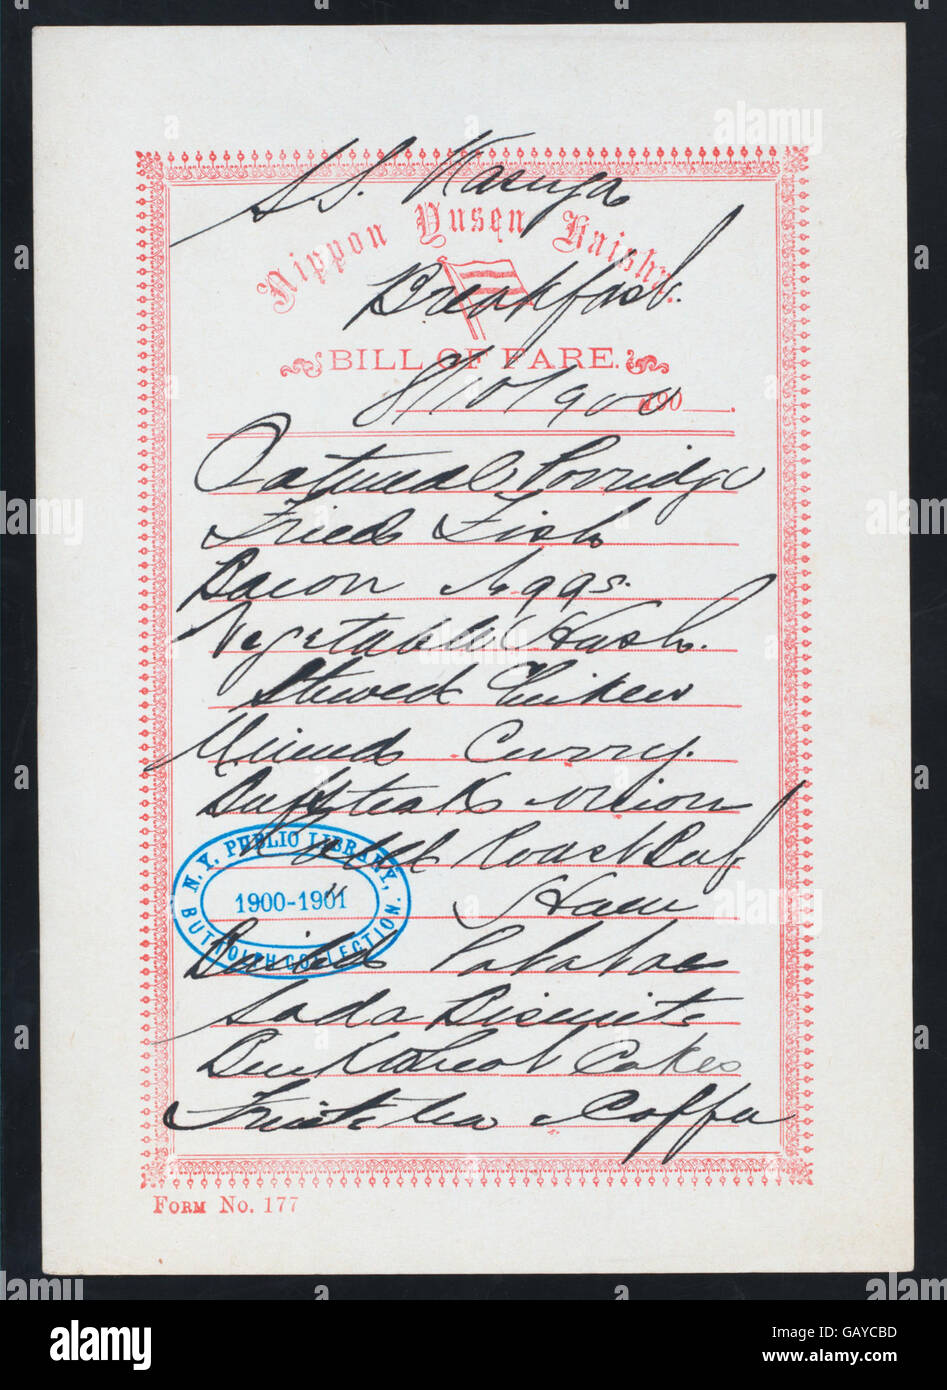 S.S. Kasuga
Nippon Yusen Kaisha.
Breakfast.
BILL OF FARE.
8/10/1900 190
Oatmeal Porridge
Fried Fish
Bacon Eggs.
Vegetable Hash.
Stewed Chicken
Minced Curry.
Beefsteak Onion
Cold Roast Beef
N. Y. PUBLIC LIBRARY,
1900-1901
BUTTOLPH COLLECTION.
Ham
Boiled Potatoes
Soda Biscuits
Buckwheat Cakes
Fruit tea Coffee
FORM NO. 177
alamy
alamy
Image ID: GAYCBD
www.alamy.com